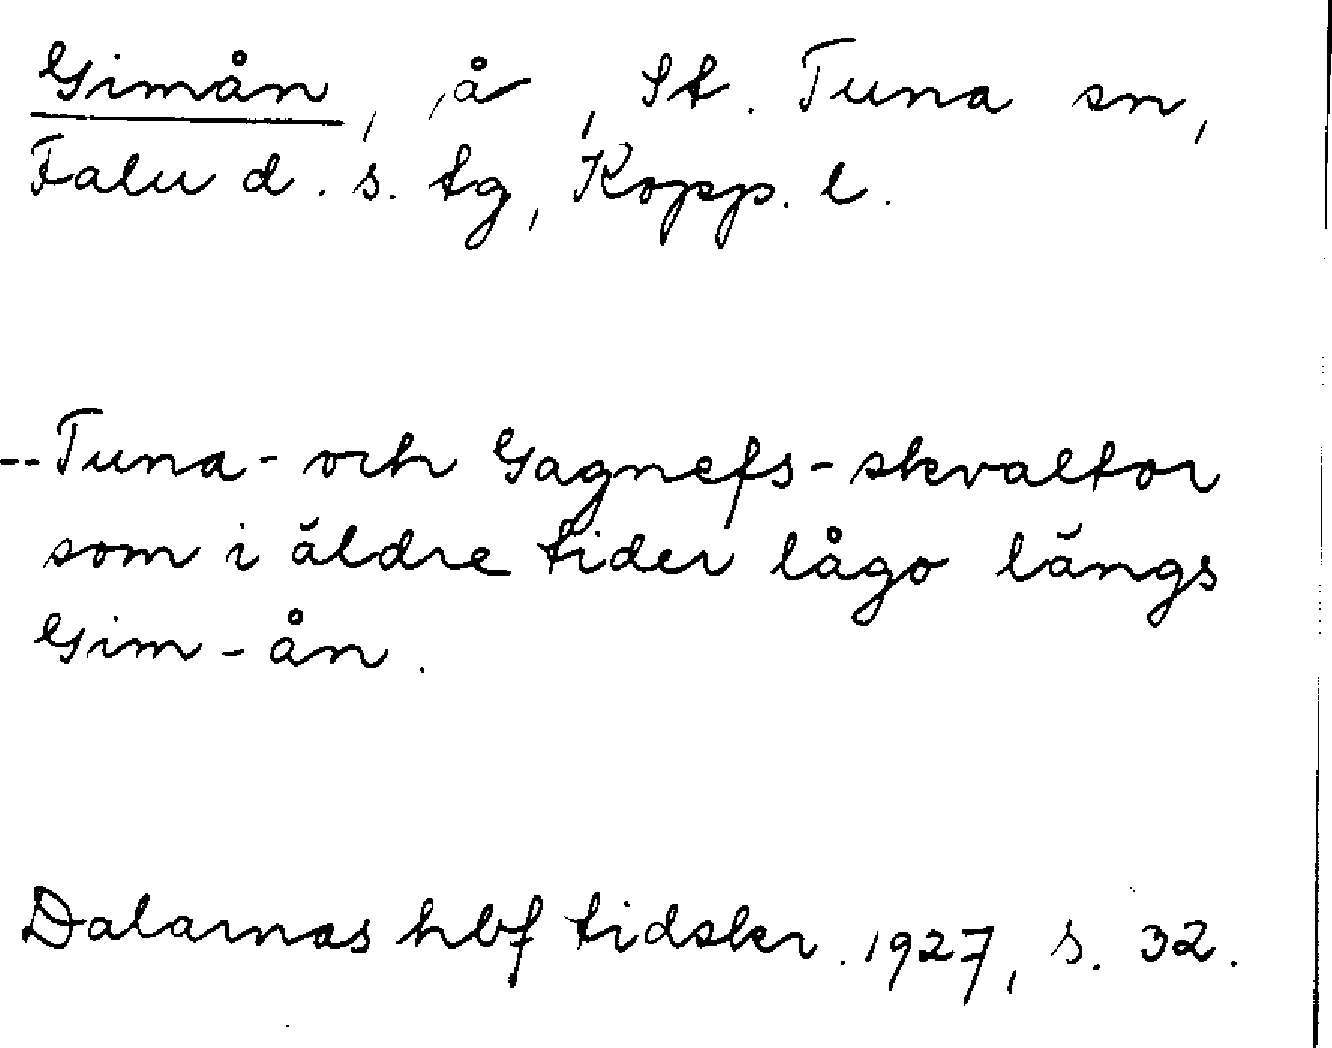 Gimån, å, St. Tuna sn,
Falu d. s. tg, Kopp. l.
--Tuna- och Gagnefs-skvaltor
som i äldre tider lågo längs
Gim-ån.
Dalarnas hbf tidskr. 1927, s. 32.